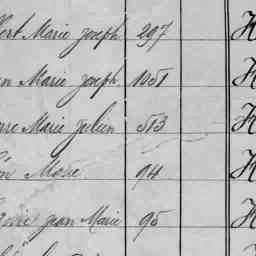 Marie joseph 297 H
Marie joseph 1051 H
Marie Julien 513 H
Marie 94 H
Jean Marie 95 H
H